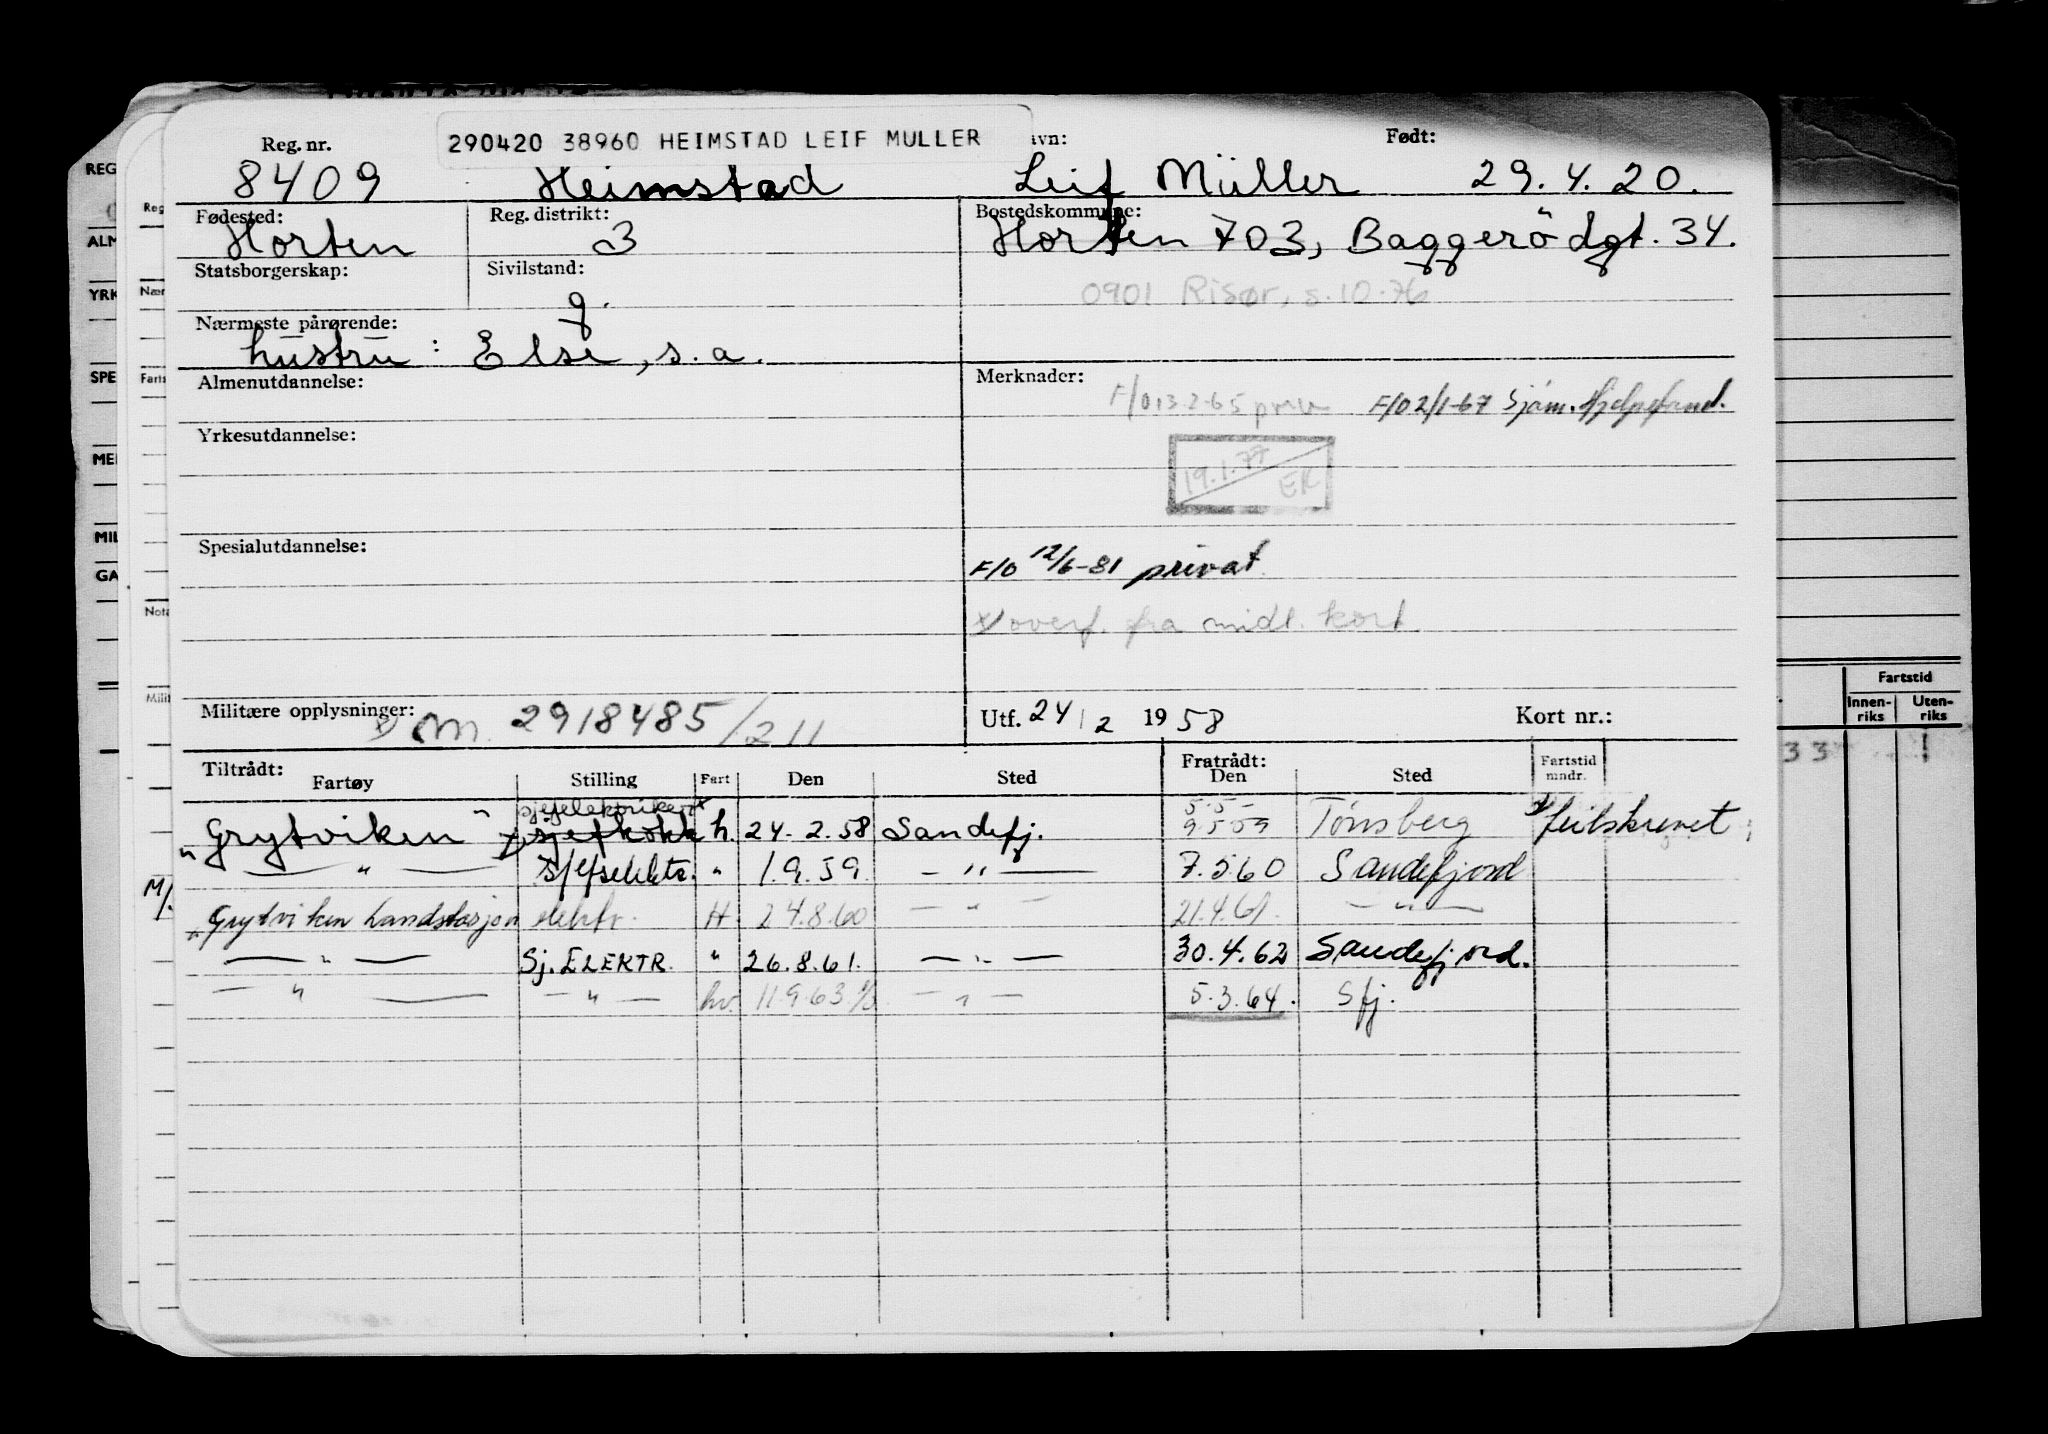 Reg. nr. 290420 38960 HEIMSTAD LEIF MULLER Født:
8409 Heimstad Leif Müller 29.4.20.
Fødested: Reg. distrikt: Bostedskommune:
Horten 3 Horten 703, Baggerödgt. 34.
Statsborgerskap: Sivilstand:
g. 0901 Risør, s. 10-76
Nærmeste pårørende:
hustru : Else, s.a.
Almenutdannelse: Merknader:
F/O 13-2-65 priv F/O 2/1-67 Sjøm. Hjelpefond.
Yrkesutdannelse:
19.1.77 EK
Spesialutdannelse:
F/O 12/6-81 privat
x) overf. fra midl. kort
Militære opplysninger: x) M. 2918485/211 Utf. 24/2 1958 Kort nr.:
Tiltrådt: Fratrådt: Fartstid mndr.
Fartøy Stilling Fart Den Sted Den Sted
sjefelektriker x 5.5-
"Grytviken" x) sjefkokk h. 24-2.58 Sandefj. 9559 Tønsberg x) feilskrevet
— " — Sjefselektr. " 1.9.59. — " — 7.5.60 Sandefjord
M/.
"Grytviken Landstasjon elektr. H. 24.8.60 — " — 21.4.61. — " —
— " — Sj. ELEKTR. " 26.8.61. — " — 30.4.62 Sandefjord.
— " — — " — hv. 11.9.63 — " — 5.3.64. Sfj.
REG
ALM
YRK
SPE
MIL
GA
Reg
Nær
Farts
Nota
Milit
Fartstid
Innen-riks Uten-riks
33 1